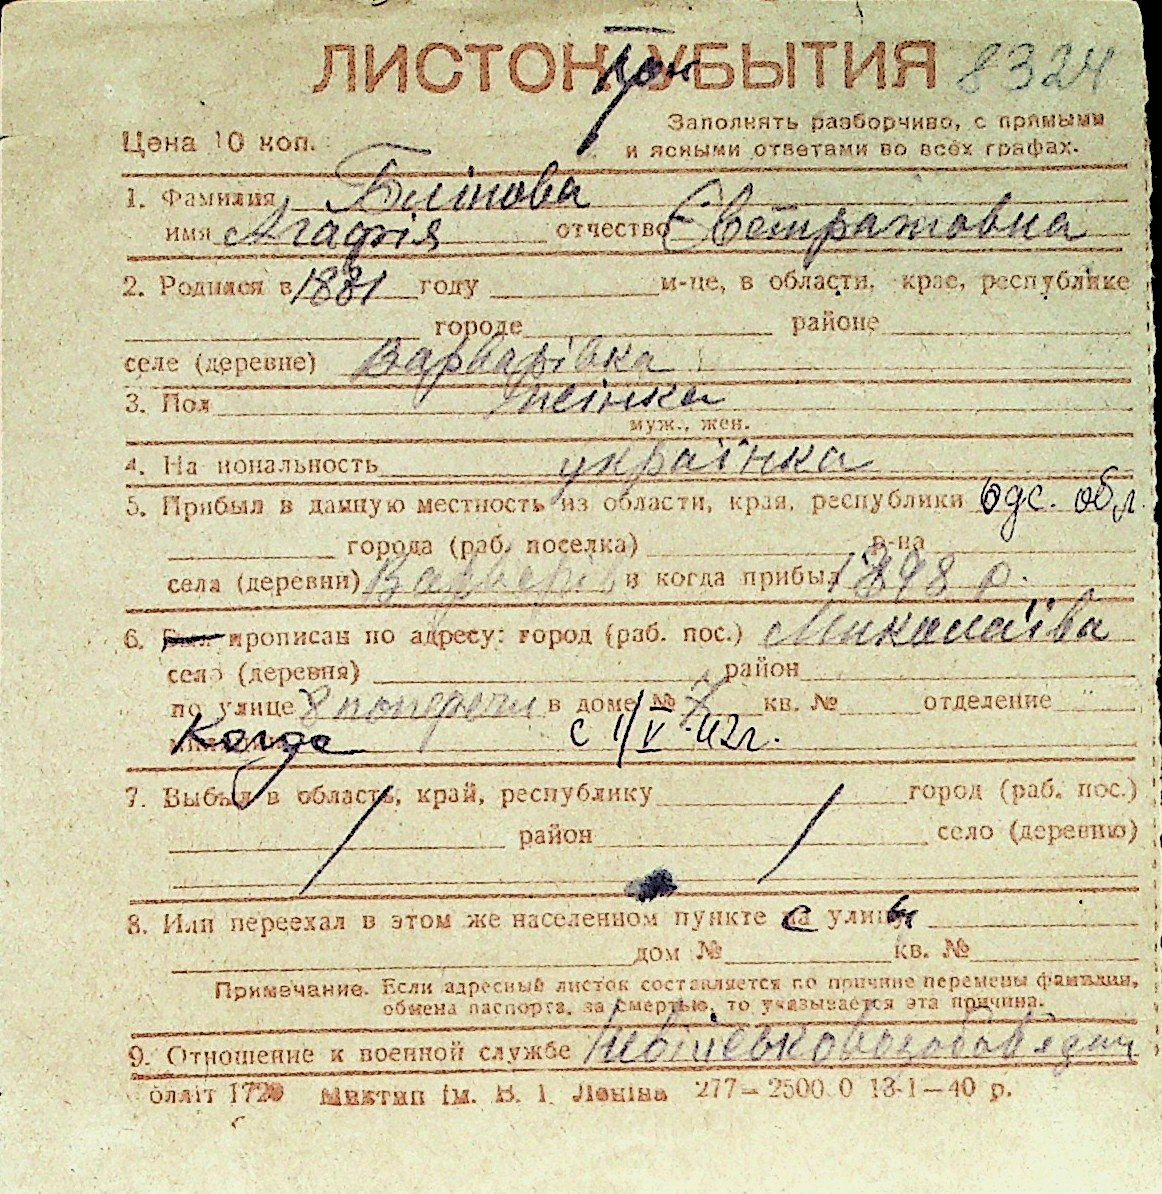 ЛИСТОК УБЫТИЯ 8324
Цена 10 коп.
Заполнять разборчиво, с прямыми
и ясными ответами во всех графах.
1. Фамилия Блінова
имя Агафія отчество Євстратовна
2. Родился в 1881 году м-це, в области, крае, республике
городе районе
селе (деревне) Варварівка
3. Пол жінка
муж., жен.
4. Национальность українка
5. Прибыл в данную местность из области, края, республики Одс. обл.
города (раб. поселка) р-на
села (деревни) Варварів и когда прибыл 1898 р.
6. прописан по адресу: город (раб. пос.) Миколаїва
село (деревня) район
по улице 8 попереч в доме № 7 кв. № отделение
Когда с 1/V-42г.
7. Выбыл в область, край, республику город (раб. пос.)
район село (деревню)
8. Или переехал в этом же населенном пункте с улицы
дом № кв. №
Примечание. Если адресный листок составляется по причине перемены фамилии,
обмена паспорта, за смертью, то указывается эта причина.
9. Отношение к военной службе Невійськовозобов'язан
блліт 1720 Миктип ім. В. І. Леніна 277—2500.0 13-1—40 р.